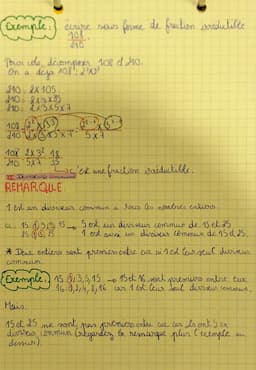 Exemple: écrire sous forme de fraction irréductible
108
210
Pour cela, décomposer 108 et 210.
On a déjà 108:
210: 2x105
210: 2x3x35
210: 2x3x5x7
108
210 2x3x5x7 5x7
108 2x3² 18
210 5x7 35
c'est une fraction irréductible.
REMARQUE
1 est un diviseur commun à tous les nombres entiers
15: 1, 3, 5, 15 → 5 est un diviseur commun de 15 et 25
25: 1, 5, 25 1 est aussi un diviseur commun de 15 et 25.
* Deux entiers sont premiers entre eux si 1 est leur seul diviseur
commun.
Exemple: 15: 1, 3, 5, 15 → 15 et 16 sont premiers entre eux
16: 1, 2, 4, 8, 16 car 1 est leur seul diviseur commun.
Mais
15 et 25 ne sont pas premiers entre eux car ils ont 5 en
diviseur commun (regardez la remarque plus l'exemple au
dessus).